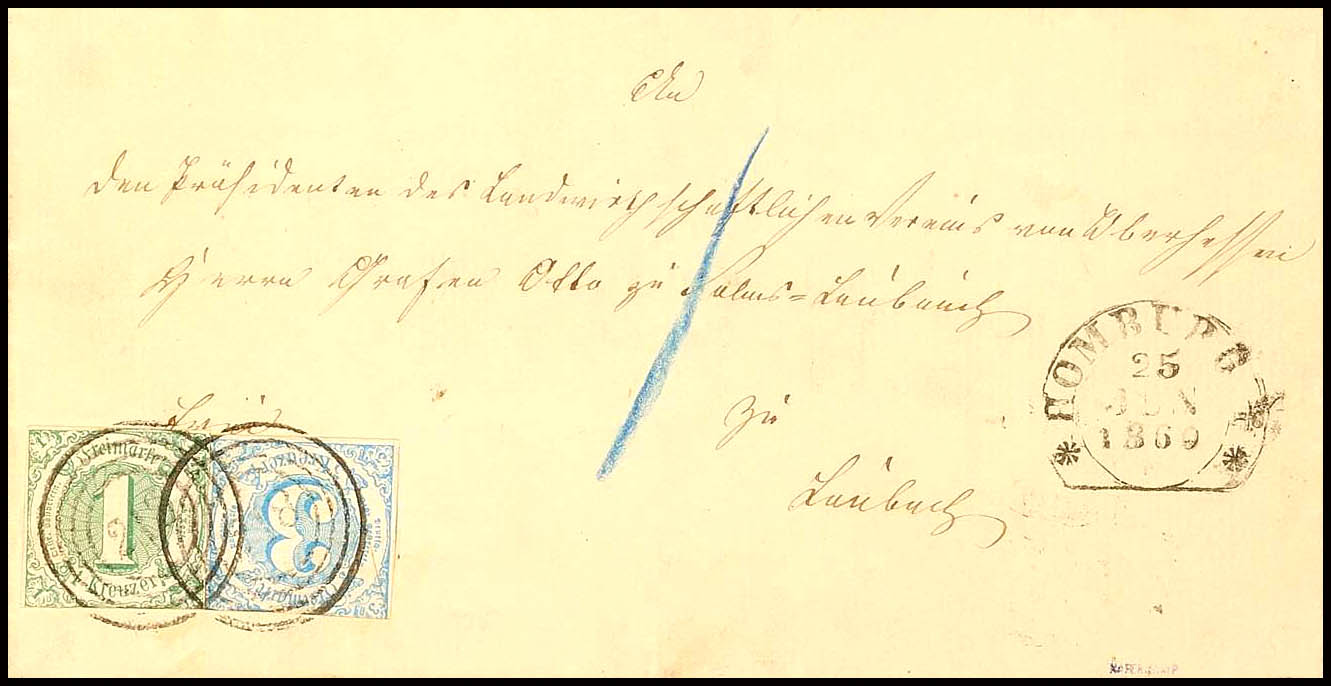 An
den Präsidenten des Landwirthschaftlichen Vereins von Oberhessen
Herrn Grafen Otto zu Solms=Laubach
zu
Laubach
HOMBURG
25
JUN
1860
Freimarke
1
Kreuzer
Freimarke
3
Kreuzer